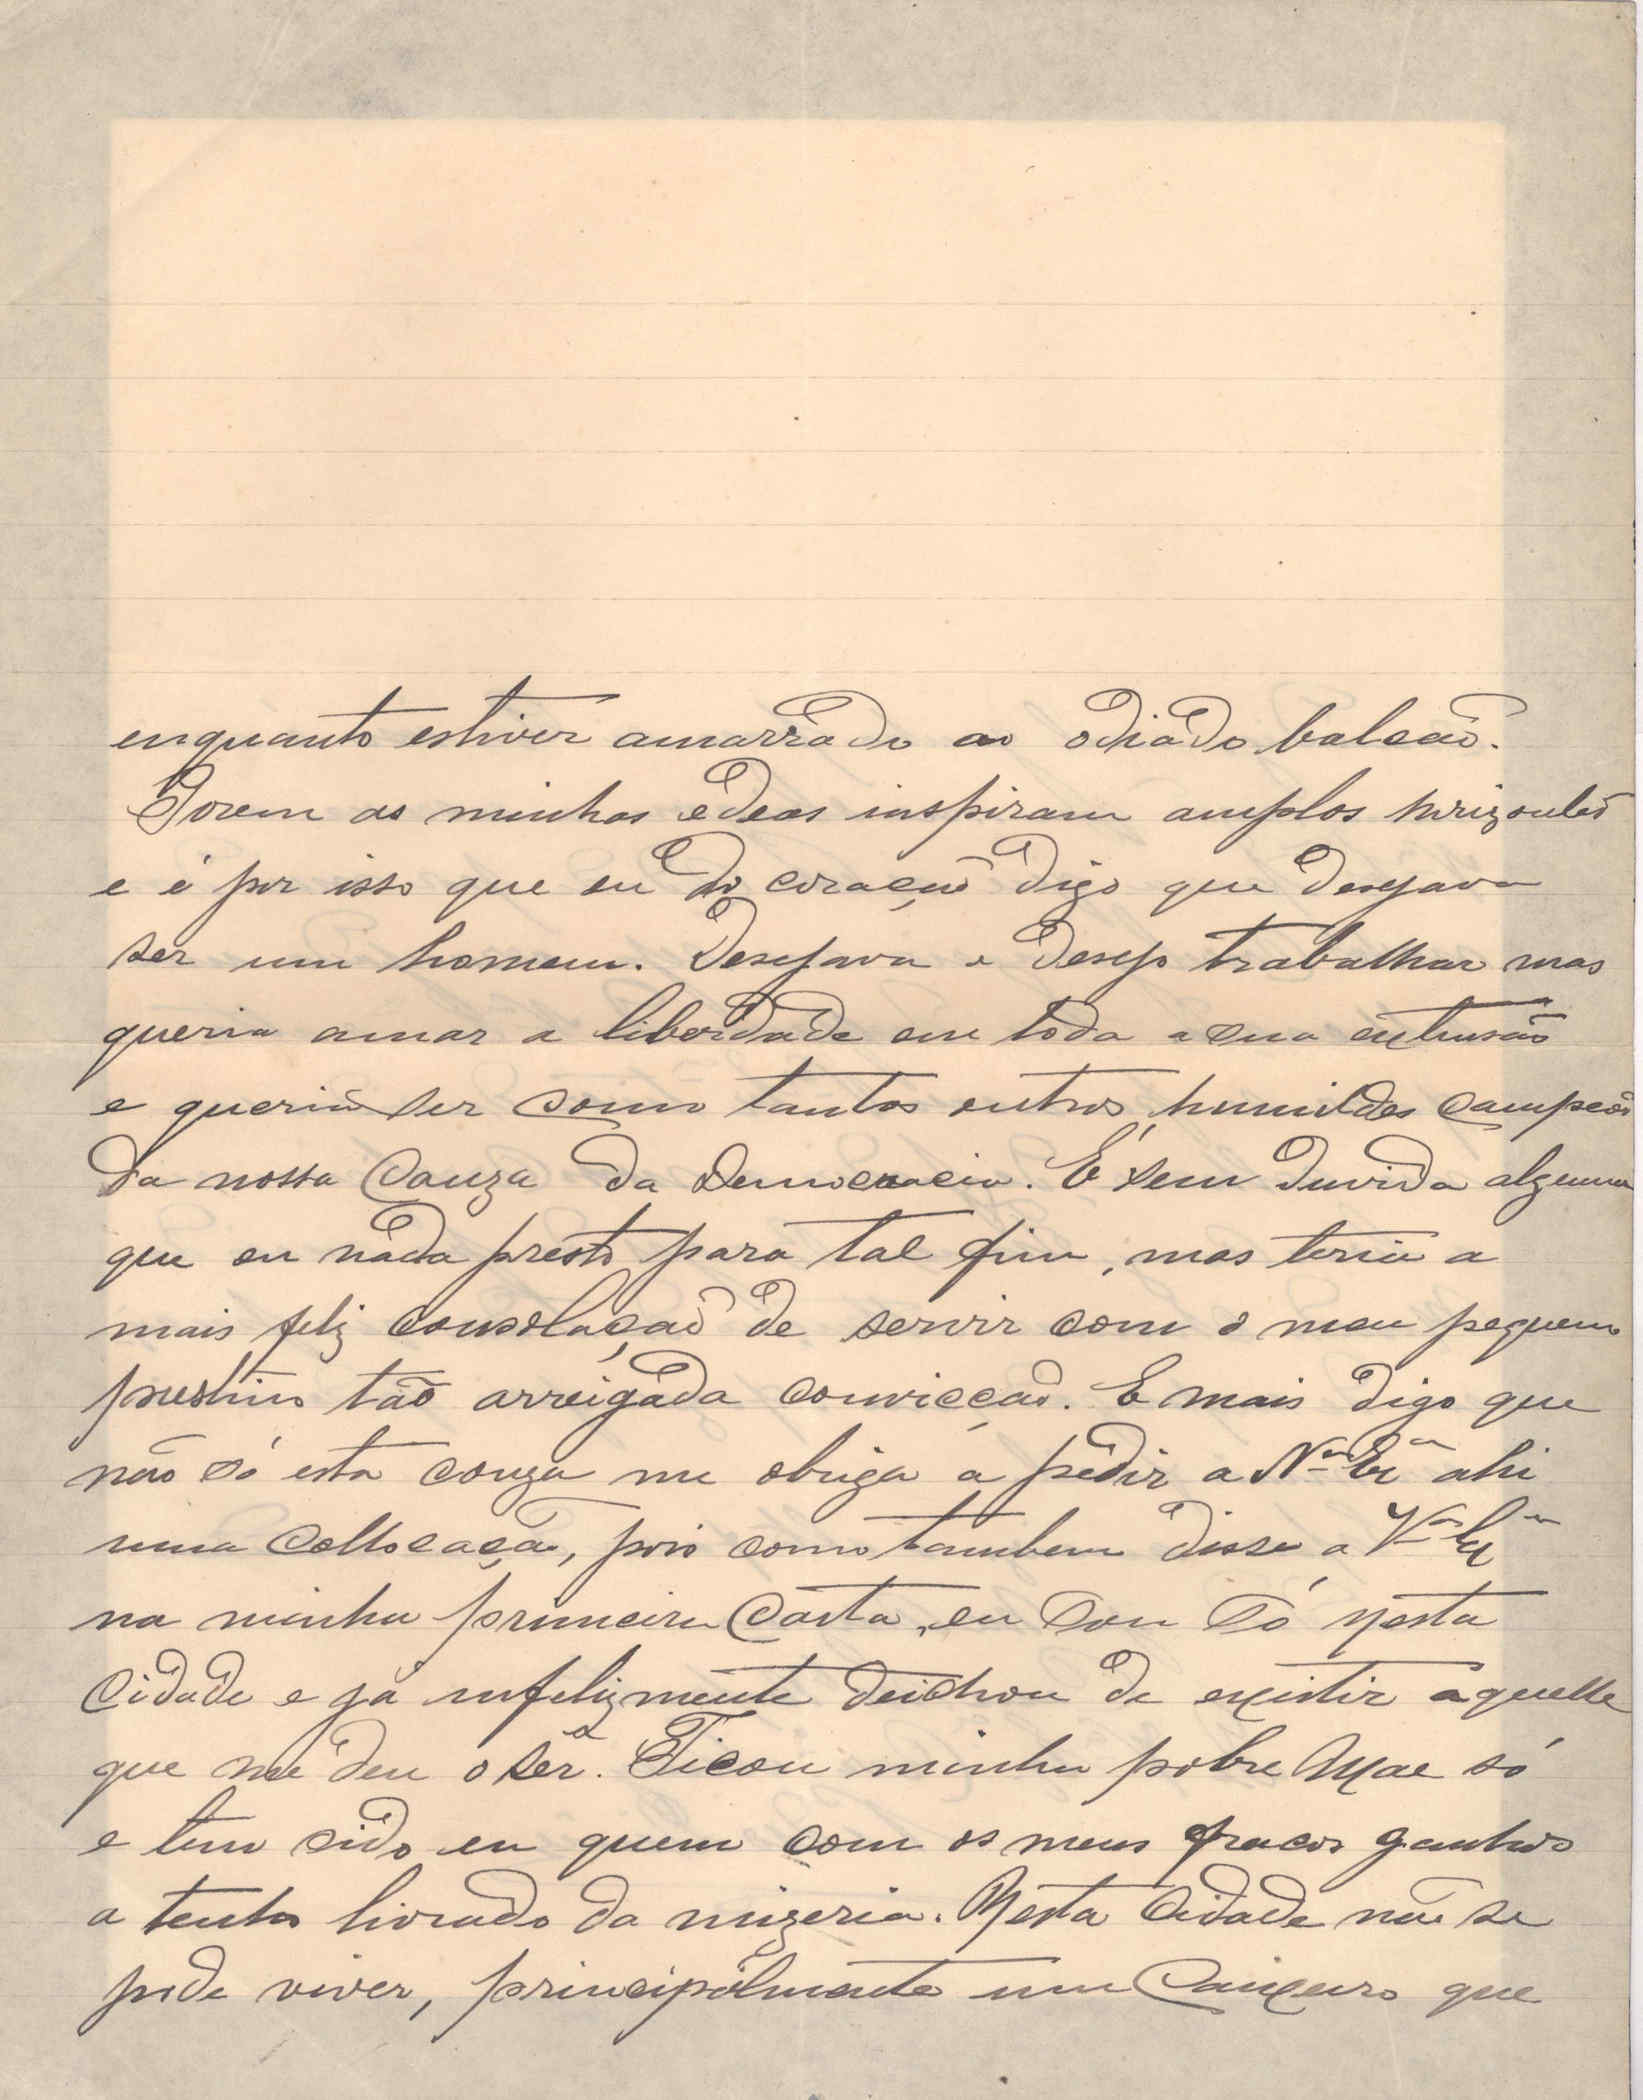 enquanto estiver amarrado ao odiado balcão.
Porem as minhas edeas inspiram amplos horizontes
e é por isso que eu do coração digo que desejava
ser um homem. Desejava e desejo trabalhar mas
queria amar a liberdade em toda a sua extensão
e queria ser como tantos outros humildes campeões
da nossa Cauza da Democracia. É sem duvida alguma
que eu nada presto para tal fim, mas teria a
mais feliz consolação de servir com o meu pequeno
prestimo tão arreigada convicção. E mais digo que
não só esta couza me obriga a pedir a V.ª Exª ahi
uma collocação, pois como tambem disse a V.ª Exª
na minha primeira Carta, eu sou só nesta
Cidade e já infelizmente deichou de existir aquelle
que me deu o sêr. Ficou minha pobre Mãe só
e tem sido eu quem com os meus fracos ganhos
a tenho livrado da mizeria. Nesta Cidade não se
pode viver, principalmente um Caixeiro que